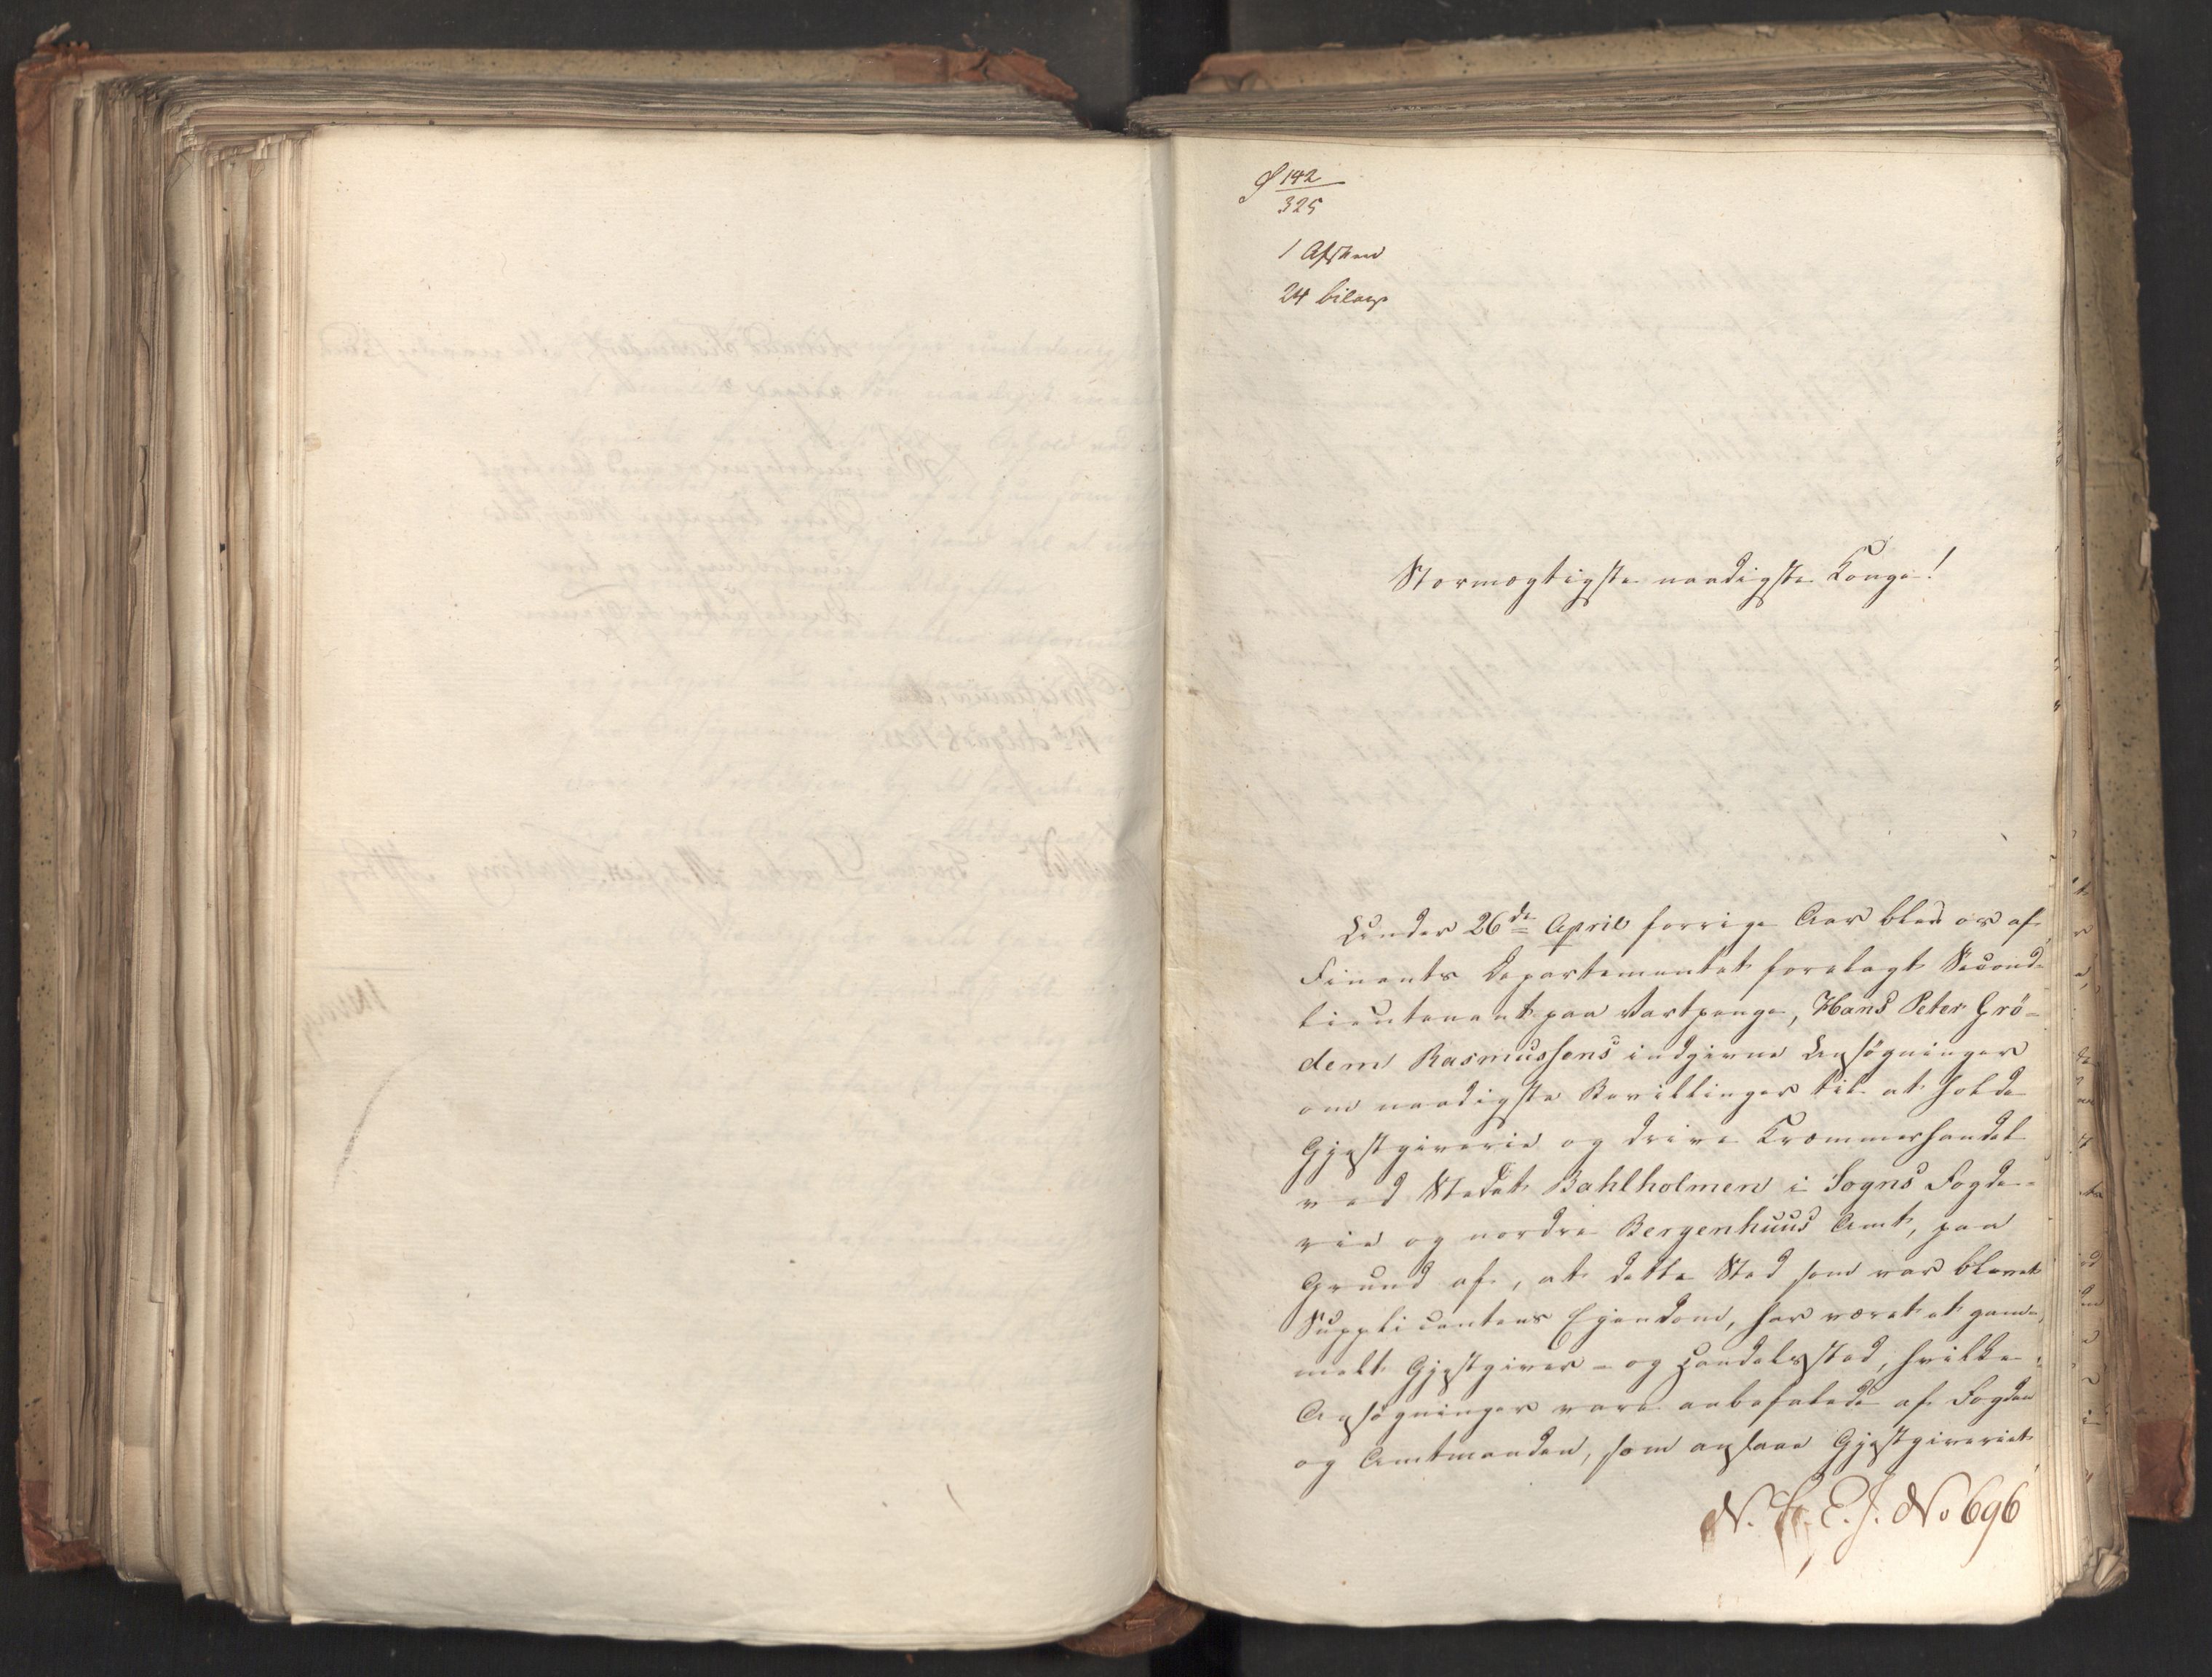 142
325
1 Afskr
24 bilag
Stormægtigste naadigste Konge!
Under 26de April forrige Aar blev os af
Finants Departementet forelagt Second-
lieutenant paa Vartpenge, Hans Peter Grö-
dem Rasmussens indgivne Ansøgninger
om naadigste Bevillinger til at holde
Gjestgiverie og drive Kræmmerhandel
ved Stedet Bahlholmen i Sogns Fogde-
rie og nordre Bergenhuus Amt, paa
Grund af, at dette Sted som var blevet
Supplicantens Ejendom, har været et gam-
melt Gjestgiver- og Handelssted, hvilke
Ansøgninger vare anbefalede af Fogden
og Amtmanden, som ansaae Gjestgiveriet
N. E. J. No 696